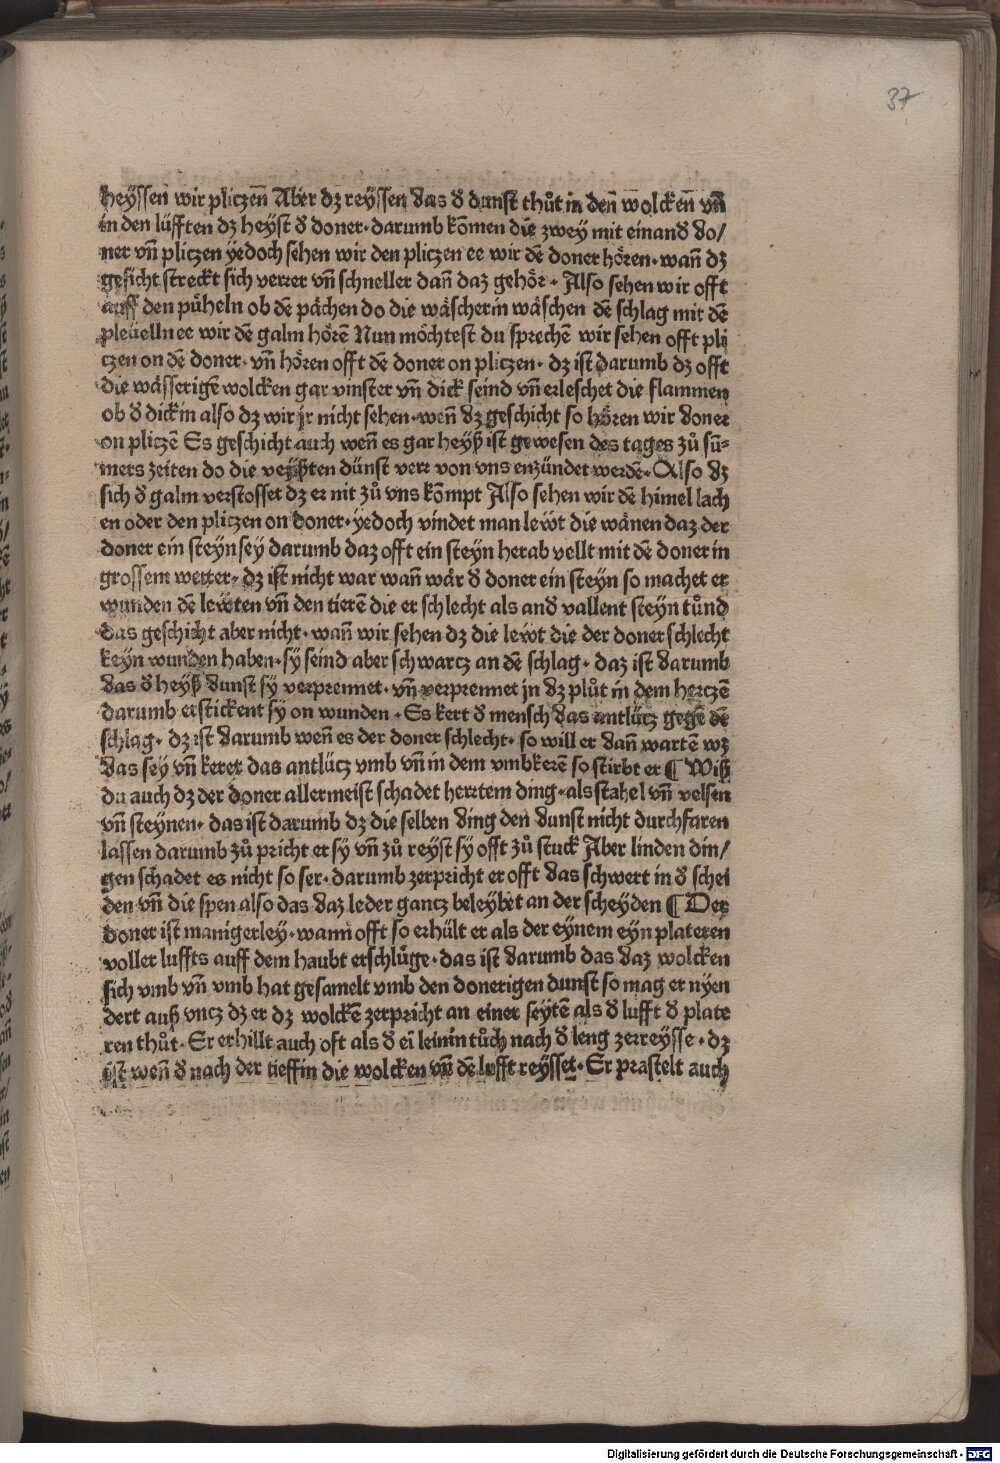 37
heyssen wir pliczen̄ Aber dz reyssen das d̕ dunst thůt in den̄ wolcken̄ vn̄
in den lüfften dz heyst d̕ doner · darumb kōmen die zwey mit einand̕ do/
ner vn̄ pliczen yedoch sehen wir den pliczen ee wir dē doner hören · wan̄ dz
gesicht streckt sich verrer vn̄ schneller dan̄ daz gehör · Also sehen wir offt
auff den püheln ob dē pächen do die wäscherin wäschen dē schlag mit dē
pleüelln ee wir dē galm hörē Nun möchtest du sprechē wir sehen offt pli
czen on dē doner · vn̄ hören offt dē doner on pliczen · dz ist darumb dz offt
die wässerigē wolcken gar vinster vn̄ dick seind vn̄ erleschet die flammen
ob d̕ dickin also dz wir jr nicht sehen · wen̄ dz geschicht so hören wir doner
on pliczē Es geschicht auch wen̄ es gar heyß ist gewesen des tages zů sū⸗
mers zeiten do die veyßten dünst verr von vns enzündet werdē · Also dz
sich d̕ galm verstosset dz er nit zů vns kōmpt Also sehen wir dē himel lach
en oder den pliczen on doner · yedoch vindet man lewt die wänen daz der
doner ein steyn sey darumb daz offt ein steyn herab vellt mit dē doner in
grossem wetter · dz ist nicht war wan̄ wär d̕ doner ein steyn so machet er
wunden dē lewten vn̄ den tierē die er schlecht als and̕ vallent steyn tůnd
das geschicht aber nicht · wan̄ wir sehen dz die lewt die der doner schlecht
keyn wunden haben · sy seind aber schwarcz an dē schlag · daz ist darumb
das d̕ heyß dunst sy verprennet · vn̄ verprennet jn dz plůt in dem herczē
darumb erstickent sy on wunden · Es kert d̕ mensch das antlücz gegē dē
schlag · dz ist darumb wen̄ es der doner schlecht · so will er dan̄ wartē wz
das sey vn̄ keret das antlücz vmb vn̄ in dem vmbkerē so stirbt er ¶ Wiß
du auch dz der doner allermeist schadet herttem ding · als stahel vn̄ velsen
vn̄ steynen · das ist darumb dz die selben ding den dunst nicht durchfaren
lassen darumb zů pricht er sy vn̄ zů reyst sy offt zů stuck Aber linden din/
gen schadet es nicht so ser · darumb zerpricht er offt das schwert in d̕ schei
den vn̄ die spen also das daz leder gancz beleybet an der scheyden ¶ Der
doner ist manigerley · wann offt so erhült er als der eynem eyn plateren
voller luffts auff dem haubt erschlůge · das ist darumb das daz wolcken
sich vmb vn̄ vmb hat gesamelt vmb den donerigen dunst so mag er nyen
dert auß vncz dz er dz wolckē zerpricht an einer seytē als d̕ lufft d̕ plate
ren thůt · Er erhillt auch oft als d̕ ei leinin tůch nach d̕ leng zerreysse · dz
ist wen̄ d̕ nach der tieffin die wolcken vn̄ dē lufft reysset · Er prastelt auch
Digitalisierung gefördert durch die Deutsche Forschungsgemeinschaft - DFG